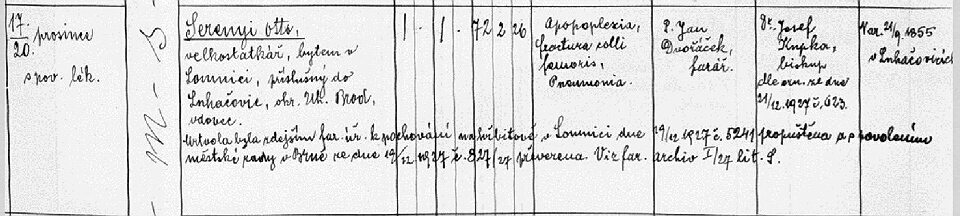 17/20. prosince
s pov. lék.
M - S
Serenyi Otto,
velkostatkář, bytem v
Lomnici, příslušný do
Luhačovic, okr. Uh. Brod,
vdovec.
1 . 1 . 72 2 26
Apopoplexia,
fractura colli
femoris,
Pneumonia.
P. Jan
Dvořáček,
farář.
Dr. Josef
Kupka,
biskup
dle ozn. ze dne
21/12 1927 č. 623.
Nar. 21/9 1855
v Luhačovicích
Mrtvola byla zdejším far. úř. k pochování na hřbitově v Lomnici dne 19/12 1927 č. 5241 propuštěna a s povolením
městské rady v Brně ze dne 19/12 1927 č. 827/27 převezena. Viz far. archiv I/27 lit. S.